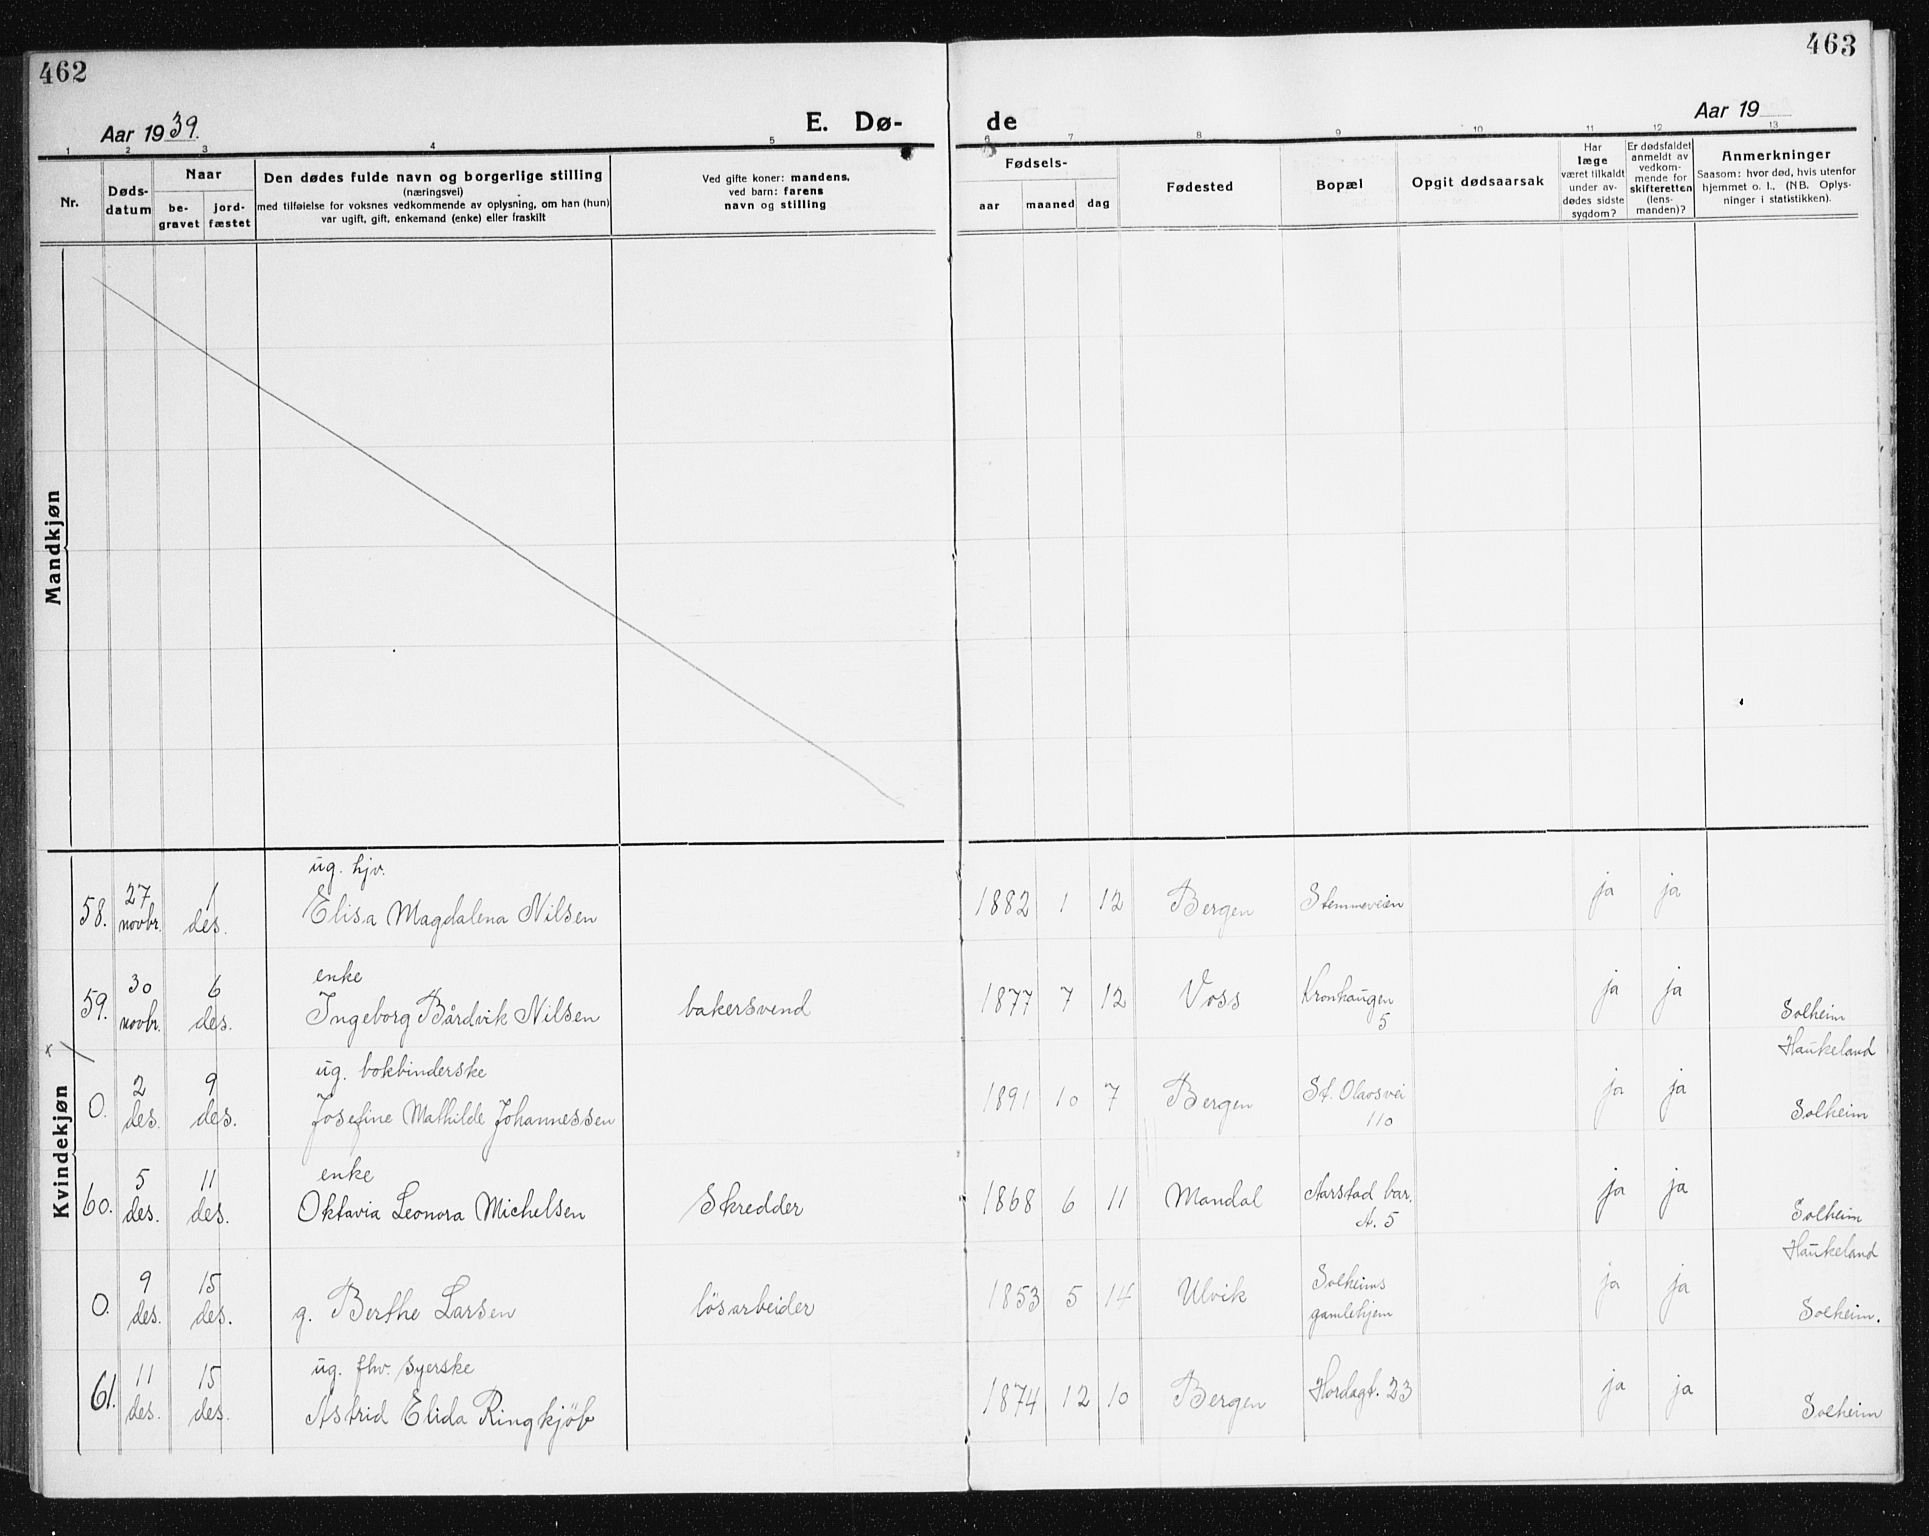 462
463
Aar 1939.
E. Dø-
de
Aar 19
1 2 3 4 5 6 7 8 9 10 11 12 13
Nr.
Døds-
datum
Naar
be-
gravet
jord-
fæstet
Den dødes fulde navn og borgerlige stilling
(næringsvei)
med tilføielse for voksnes vedkommende av oplysning, om han (hun)
var ugift, gift, enkemand (enke) eller fraskilt
Ved gifte koner: mandens,
ved barn: farens
navn og stilling
Fødsels-
aar maaned dag
Fødested
Bopæl
Opgit dødsaarsak
Har
læge
været tilkaldt
under av-
dødes sidste
sygdom?
Er dødsfaldet
anmeldt av
vedkom-
mende for
skifteretten
(lens-
manden)?
Anmerkninger
Saasom: hvor død, hvis utenfor
hjemmet o. l., (NB. Oplys-
ninger i statistikken).
Mandkjøn
Kvindekjøn
ug. hjv.
58. 27 novbr. 1 des. Elisa Magdalena Nilsen 1882 1 12 Bergen Stemmeveien ja ja
enke
59. 30 novbr. 6 des. Ingeborg Bårdvik Nilsen bakersvend 1877 7 12 Voss Kronhaugen 5 ja ja Solheim
x
Haukeland
ug. bokbinderske
0. 2 des. 9 des. Josefine Mathilde Johannessen 1891 10 7 Bergen St. Olavsvei 110 ja ja Solheim
enke
60. 5 des. 11 des. Oktavia Leonora Michelsen Skredder 1868 6 11 Mandal Aarstad bar. A. 5 ja ja Solheim
Haukeland
0. 9 des. 15 des. g. Berthe Larsen løsarbeider 1853 5 14 Ulvik Solheims gamlehjem ja ja Solheim.
ug. fhv. syerske
61. 11 des. 15 des. Astrid Elida Ringkjøb 1874 12 10 Bergen Hordagt. 23 ja ja Solheim